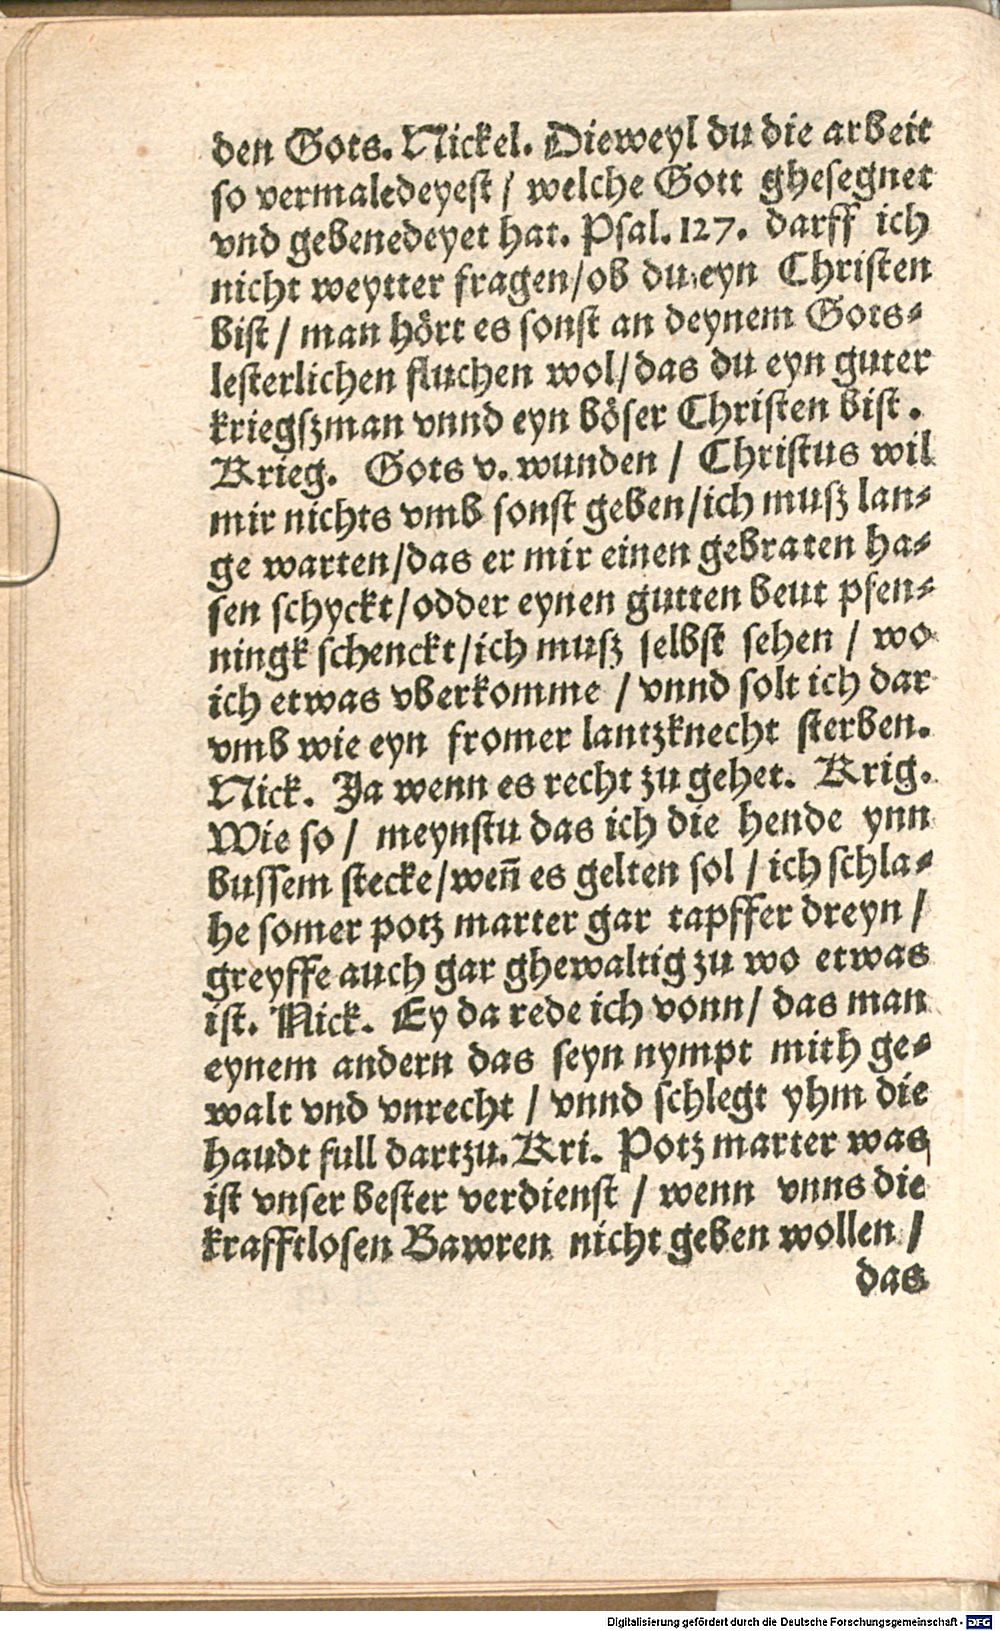 den Gots. Nickel. Dieweyl du die arbeit
so vermaledeyest / welche Gott ghesegnet
vnd gebenedeyet hat. Psal. 127. darff ich
nicht weytter fragen/ob du eyn Christen
bist / man hört es sonst an deynem Gots⸗
lesterlichen fluchen wol/das du eyn guter
kriegſzman vnnd eyn böser Christen bist.
Krieg. Gots v. wunden / Christus wil
mir nichts vmb sonst geben/ich muſz lan⸗
ge warten/das er mir einen gebraten ha⸗
sen schyckt/odder eynen gutten beut pfen⸗
ningk schenckt/ich muſz selbst sehen / wo
ich etwas vberkomme / vnnd solt ich dar
vmb wie eyn fromer lantzknecht sterben.
Nick. Ja wenn es recht zu gehet. Krig.
Wie so / meynstu das ich die hende ynn
bussem stecke/weñ es gelten sol / ich schla⸗
he somer potz marter gar tapffer dreyn /
greyffe auch gar ghewaltig zu wo etwas
ist. Nick. Ey da rede ich vonn/ das man
eynem andern das seyn nympt mith ge⸗
walt vnd vnrecht / vnnd schlegt yhm die
haudt full dartzu. Kri. Potz marter was
ist vnser bester verdienst / wenn vnns die
krafftlosen Bawren nicht geben wollen /
das
Digitalisierung gefördert durch die Deutsche Forschungsgemeinschaft - DFG